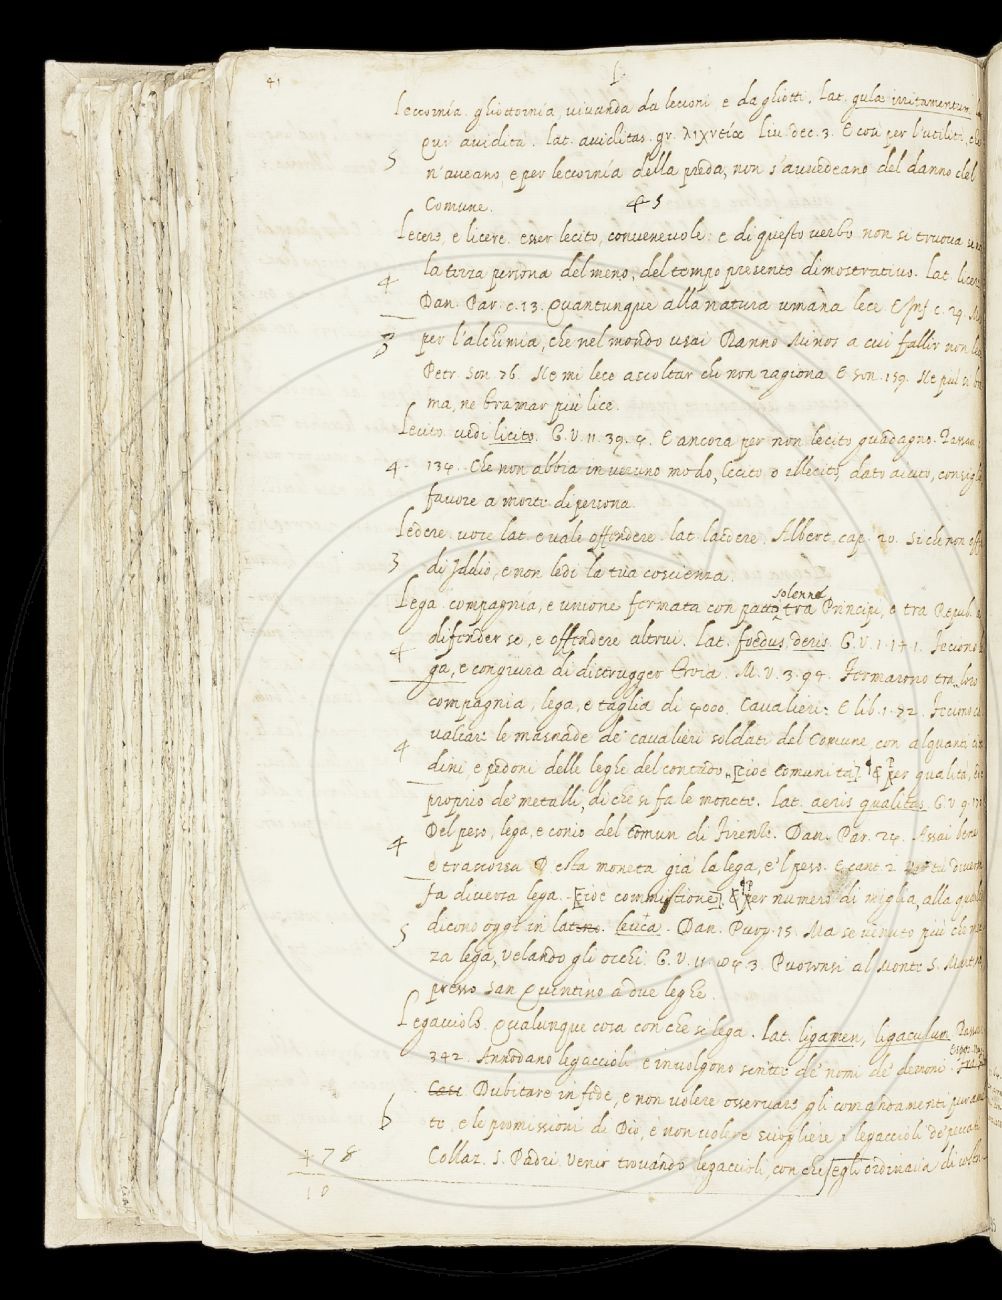 41
L
Lecconía. ghiottornia, vivanda da lecconi e da ghiotti. Lat. gulæ irritamentum
Qui avidità. lat. aviditas. gr. λιχνείας Liv. dec. 3. E così per l'utilità, che
5
n'aveano, e per lecconía della preda, non s'avvedeano del danno del
Comune. 45
Lecere, e licere. esser lecito, convenevole: e di questo verbo non si truova se non
la terza persona del meno, del tempo presente dimostrativo. Lat. licere
4
Dan. Par. c. 13. Quantunque alla natura umana lece. E Inf. c. 29. Me
3
per l'alchimia, che nel mondo usai Danno Minos a cui fallir non
Petr. Son. 76. Ne mi lece ascoltar chi non ragiona E son. 159. Ne può si
ma, ne bramar più lice.
Lecito. vedi licito. G. V. 11. 39. 4. E ancora per non lecito guadagno.
4. 134. Che non abbia in veruno modo, lecito o illecito, dato aiuto, consiglio
favore a morte di persona.
Ledere. voce lat. e vale offendere. lat. laedere. Albert. cap. 20. Si che non
3 di Iddio, e non ledi la tua coscienza.
solenne
Lega. compagnía, e unione fermata con patto tra Principi, e tra Repub.
difender se, e offendere altrui. Lat. foedus, deris. G. V. 1. 14. 1. Feciono
4
ga, e congiura di distrugger Troia. M. V. 3. 94. Fermarono tra loro
compagnia, lega, e taglia di 4000. Cavalieri: E lib. 1. 72. Fecino
valcare le masnade de' cavalieri soldati del Comune, con alquanti
4
dini e pedoni delle leghe del contado [cioè Comunita] ¶ per qualità,
proprio de' metalli, di che si fa le monete. Lat. aeris qualitas. G. V. 9.
Del peso, lega, e conio del comun di Firenze. Dan. Par. 24. Assai bene
4
è trascorsa D'esta moneta già la lega, e'l peso. E cant. 2. Virtù diversa
Fa diversa lega. [cioè commistione] ¶ per numero di miglia, alla quale
5 dicono oggi in latino. leuca. Dan. Purg. 15. Ma se venuto più che
za lega, Velando gli occhi. G. V. 3. Puosonsi al Monte S.
presso San Quentino a due leghe.
Legacciolo. Qualunque cosa con che si lega. Lat. ligamen, ligaculum.
342. Annodano legaccioli e involgono senter de' nomi de' demoni.
Dubitare in fede, e non volere osservare gli comandamenti
6
te, e le promissioni di Dio, e non volere sciogliere i legaccioli de' peccati
478
Collaz. S. Padri. Venir trovando legaccioli, con che egli ordinava di
10